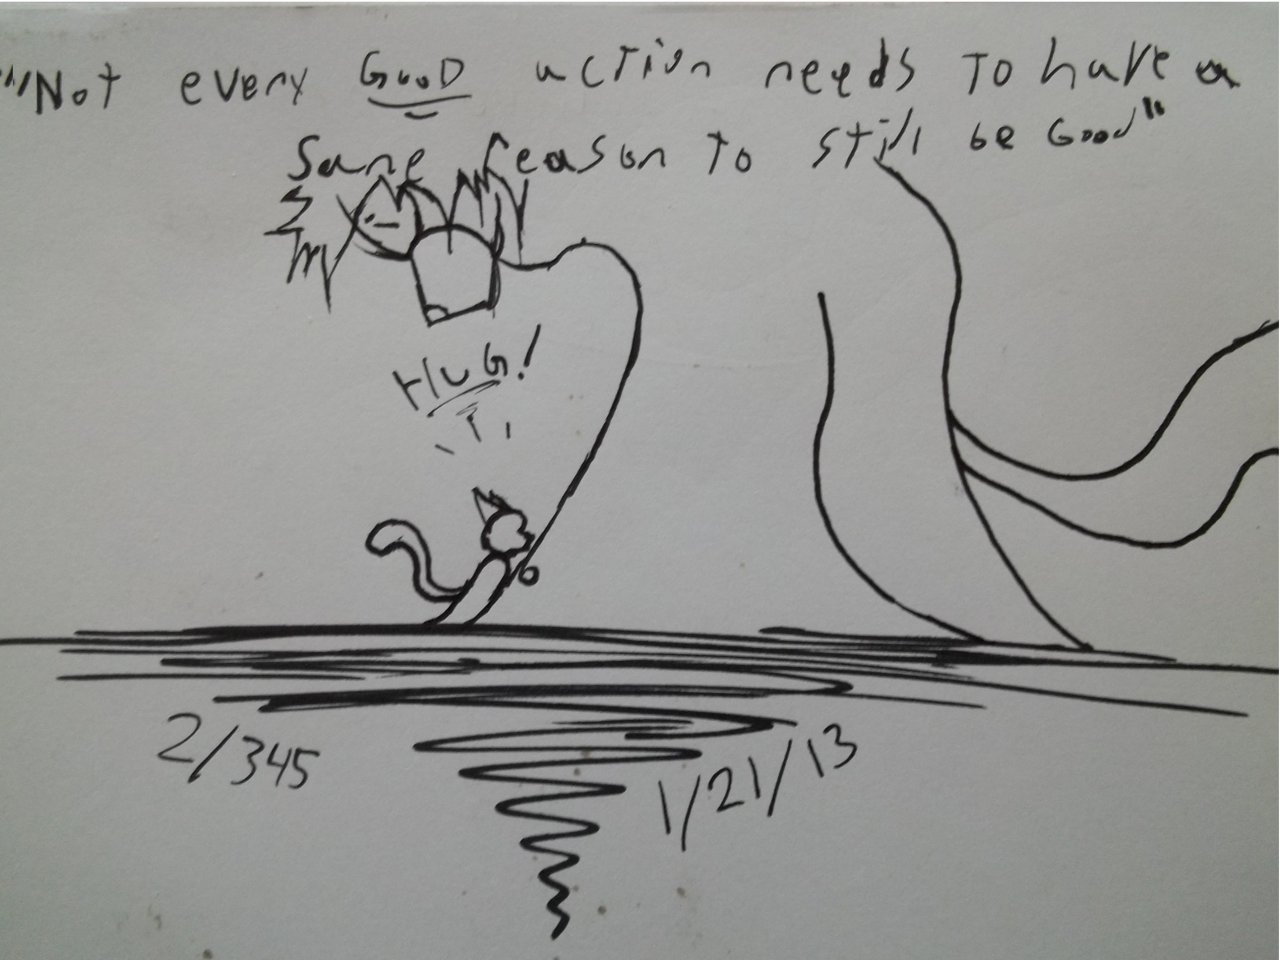 "Not every GooD action needs To have a
Sane Reason To still be Good"
HUG!
2/345
1/21/13